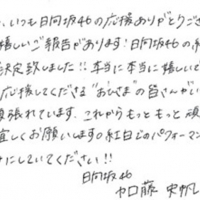 、いつも日向坂46の応援ありがとうござ
嬉しいご報告があります!日向坂46の紅
決定致しました!!本当に本当に嬉しいで
応援してくださる"おひさま"の皆さんがい
頑張れています。これからもっともっと頑
宜しくお願いします。紅白でのパフォーマン
みにしていてください!!
日向坂46
加藤 史帆